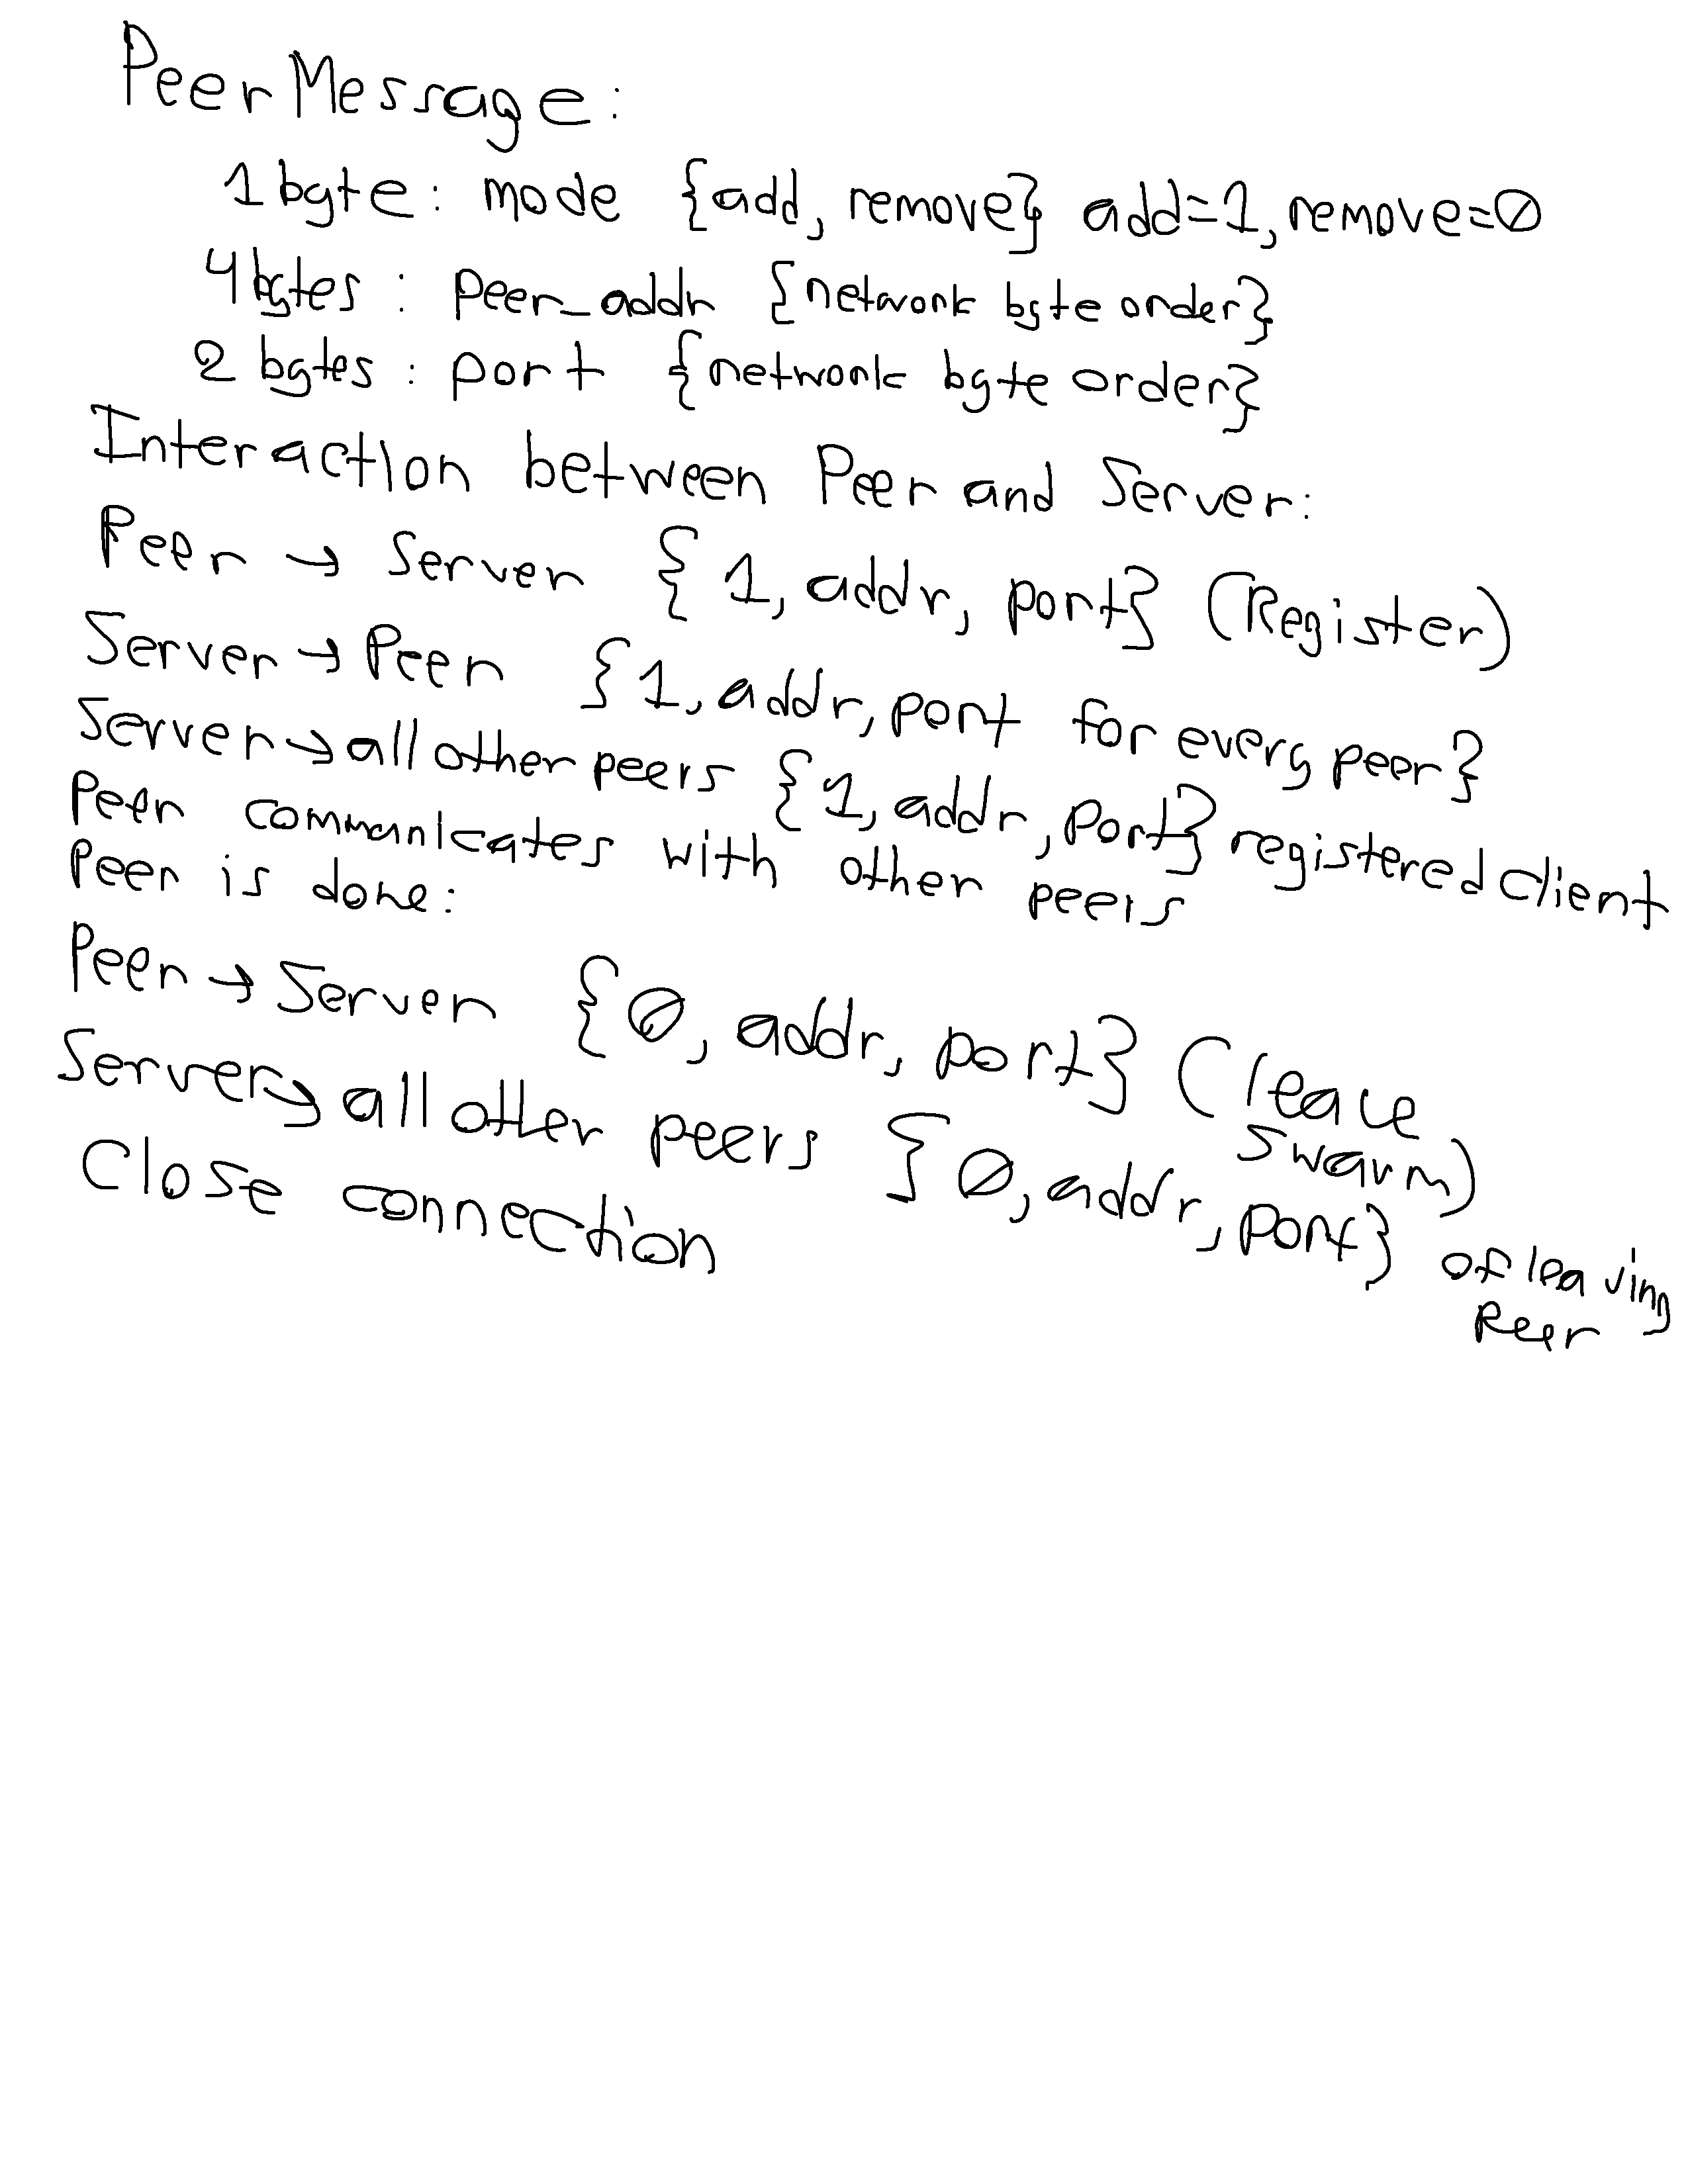 Peer Message:
1 byte: mode {add, remove} add=1, remove=0
4 bytes: peer_addr {network byte order}
2 bytes: port {network byte order}
Interaction between Peer and Server:
Peer → Server {1, addr, port} (Register)
Server → Peer {1, addr, port for every peer}
Server → all other peers {1, addr, port} registered client
Peer communicates with other peers
Peer is done:
Peer → Server {0, addr, port} (leave
swarm)
Server → all other peers {0, addr, port} of leaving
Peer
Close connection